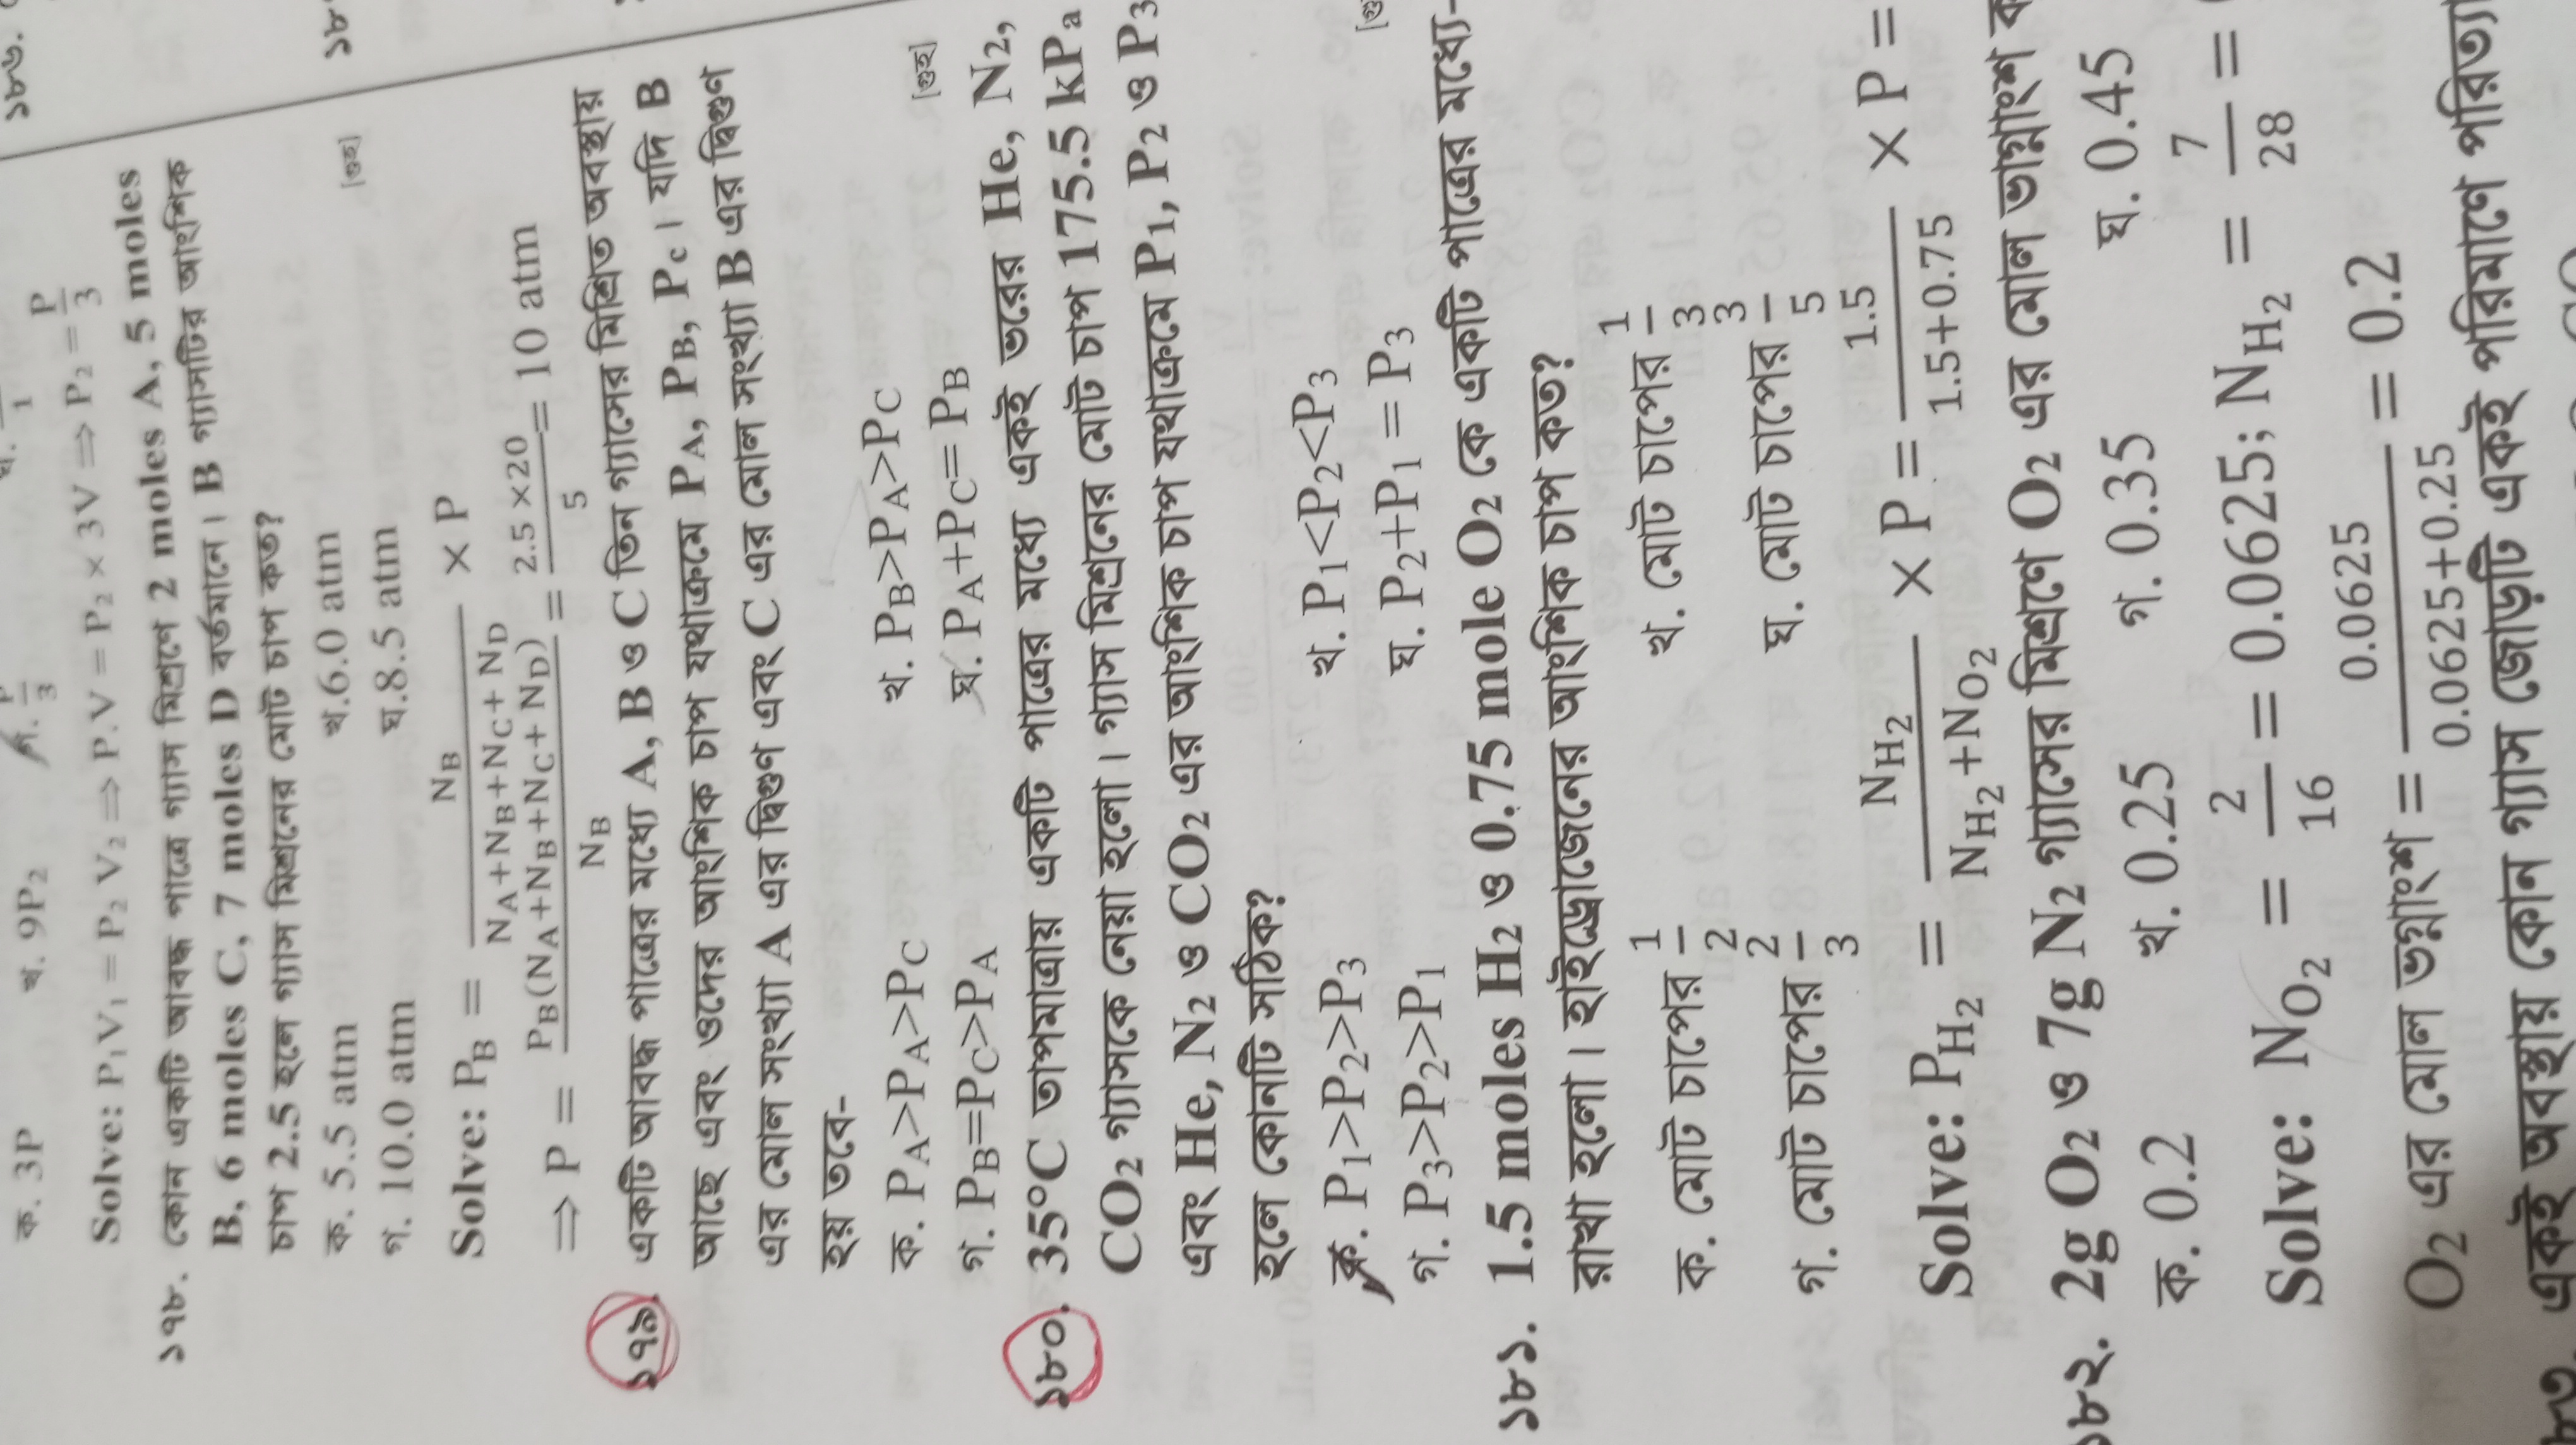 ক. 3P খ. 9P₂ গ. P/3 ঘ.
Solve: P₁V₁ = P₂ V₂ ⇒ P.V = P₂ × 3V ⇒ P₂ = P/3
১৭৮. কোন একটি আবদ্ধ পাত্রে গ্যাস মিশ্রণে 2 moles A, 5 moles
B, 6 moles C, 7 moles D বর্তমানে। B গ্যাসটির আংশিক
চাপ 2.5 হলে গ্যাস মিশ্রনের মোট চাপ কত? [গুহ]
ক. 5.5 atm খ.6.0 atm
গ. 10.0 atm ঘ.8.5 atm
Solve: P_B = N_B/(N_A+N_B+N_C+N_D) × P
⇒ P = P_B(N_A+N_B+N_C+N_D)/N_B = 2.5×20/5 = 10 atm
১৭৯. একটি আবদ্ধ পাত্রের মধ্যে A, B ও C তিন গ্যাসের মিশ্রিত অবস্থায়
আছে এবং ওদের আংশিক চাপ যথাক্রমে P_A, P_B, P_c। যদি B
এর মোল সংখ্যা A এর দ্বিগুণ এবং C এর মোল সংখ্যা B এর দ্বিগুণ
হয় তবে- [গুহ]
ক. P_A>P_A>P_C খ. P_B>P_A>P_C
গ. P_B=P_C>P_A ঘ. P_A+P_C=P_B
১৮০. 35°C তাপমাত্রায় একটি পাত্রের মধ্যে একই ভরের He, N₂,
CO₂ গ্যাসকে নেয়া হলো। গ্যাস মিশ্রনের মোট চাপ 175.5 kPₐ
এবং He, N₂ ও CO₂ এর আংশিক চাপ যথাক্রমে P₁, P₂ ও P₃
হলে কোনটি সঠিক?
ক. P₁>P₂>P₃ খ. P₁<P₂<P₃
গ. P₃>P₂>P₁ ঘ. P₂+P₁ = P₃
১৮১. 1.5 moles H₂ ও 0.75 mole O₂ কে একটি পাত্রের মধ্যে-
রাখা হলো। হাইড্রোজেনের আংশিক চাপ কত?
ক. মোট চাপের 1/2 খ. মোট চাপের 1/3
গ. মোট চাপের 2/3 ঘ. মোট চাপের 3/5
Solve: P_H₂ = N_H₂/(N_H₂+N_O₂) × P = 1.5/(1.5+0.75) × P =
১৮২. 2g O₂ ও 7g N₂ গ্যাসের মিশ্রণে O₂ এর মোল ভাগ্নাংশ ক
ক. 0.2 খ. 0.25 গ. 0.35 ঘ. 0.45
Solve: N_O₂ = 2/16 = 0.0625; N_H₂ = 7/28 =
O₂ এর মোল ভগ্নাংশ = 0.0625/(0.0625+0.25) = 0.2
একই অবস্থায় কোন গ্যাস জোড়টি একই পরিমাণে পরিত্যা
১৮৬.